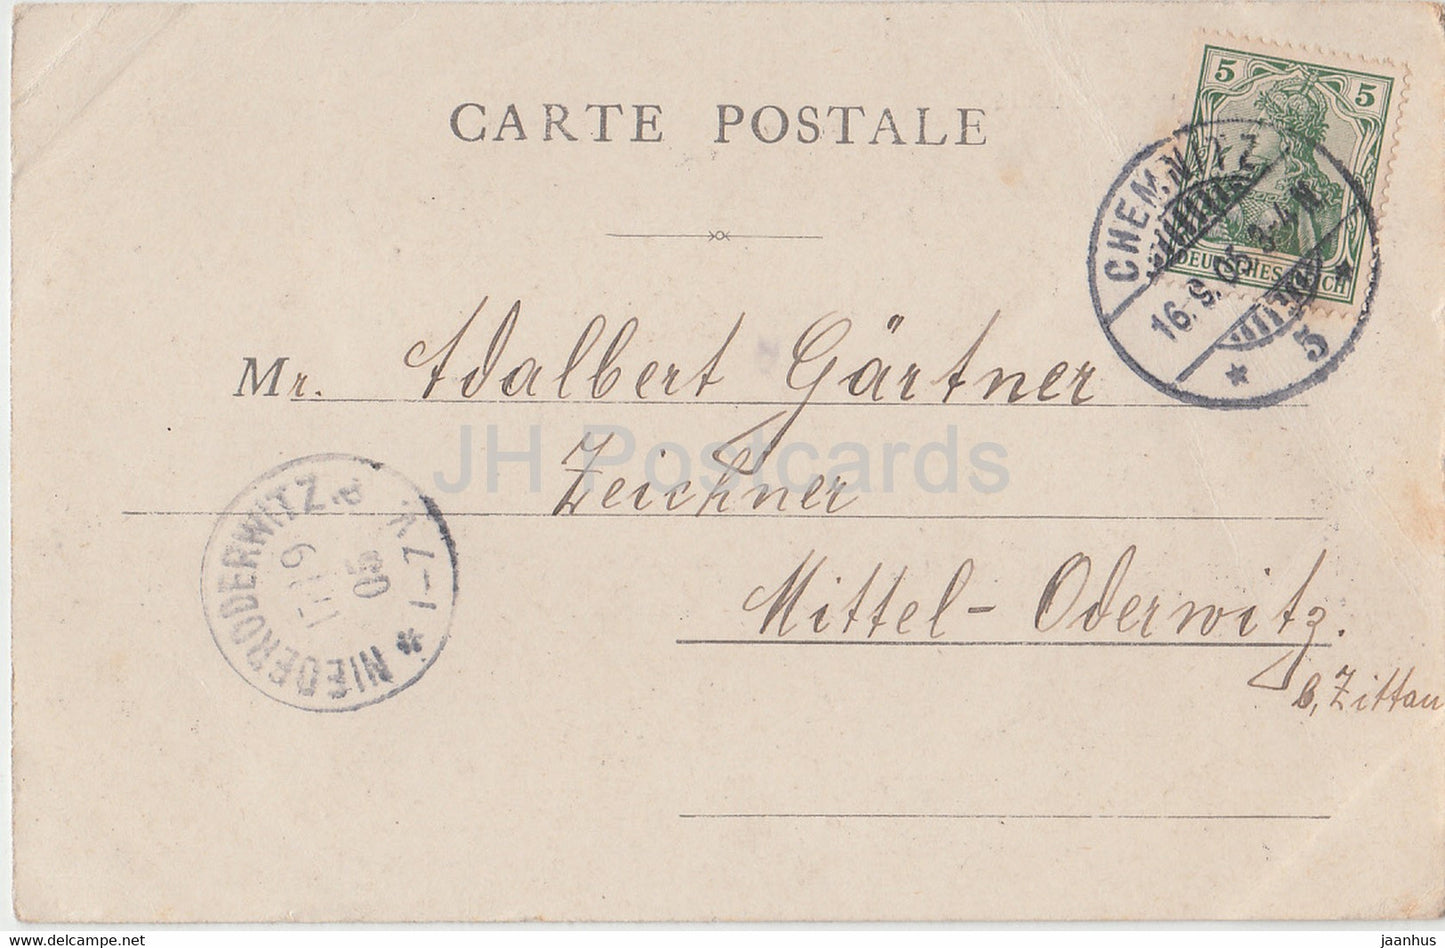 CARTE POSTALE
5 5
DEUTSCHES REICH
CHEMNITZ
16.9.05 3-4 N.
* 5 *
Mr. Adalbert Gärtner
Zeichner
Mittel-Oderwitz.
b, Zittau
NIEDERODERWITZ
17 9
05
*
1-7V.
JH Postcards
www.delcampe.net
jaanhus